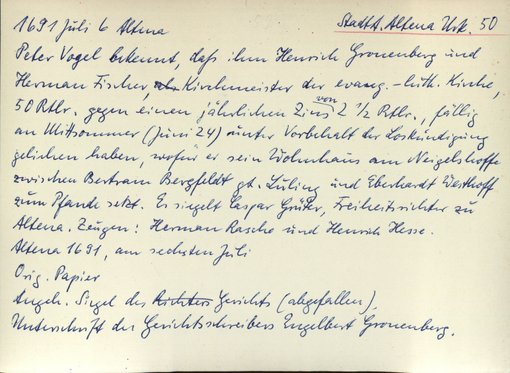 1691 Juli 6 Altena
Stadt A. Altena Urk. 50
Peter Vogel bekennt, daß ihm Henrich Gronenberg und
Herman Fischer, als Kirchmeister der evang.-luth. Kirche,
50 Rtlr. gegen einen jährlichen Zins von 2 1/2 Rtlr., fällig
an Mittsommer (Juni 24) unter Vorbehalt der Loskündigung
geliehen haben, wofür er sein Wohnhaus am Neigelshoffe
zwischen Bertram Bergfeldt gt. Lüling und Eberhardt Westhoff
zum Pfande setzt. Es siegelt Caspar Grüter, Freiheitsrichter zu
Altena. Zeugen: Herman Rasche und Henrich Hesse.
Altena 1691, am sechsten Juli
Orig. Papier
Angeh. Siegel des Richters Gerichts (abgefallen).
Unterschrift des Gerichtsschreibers Engelbert Gronenberg.